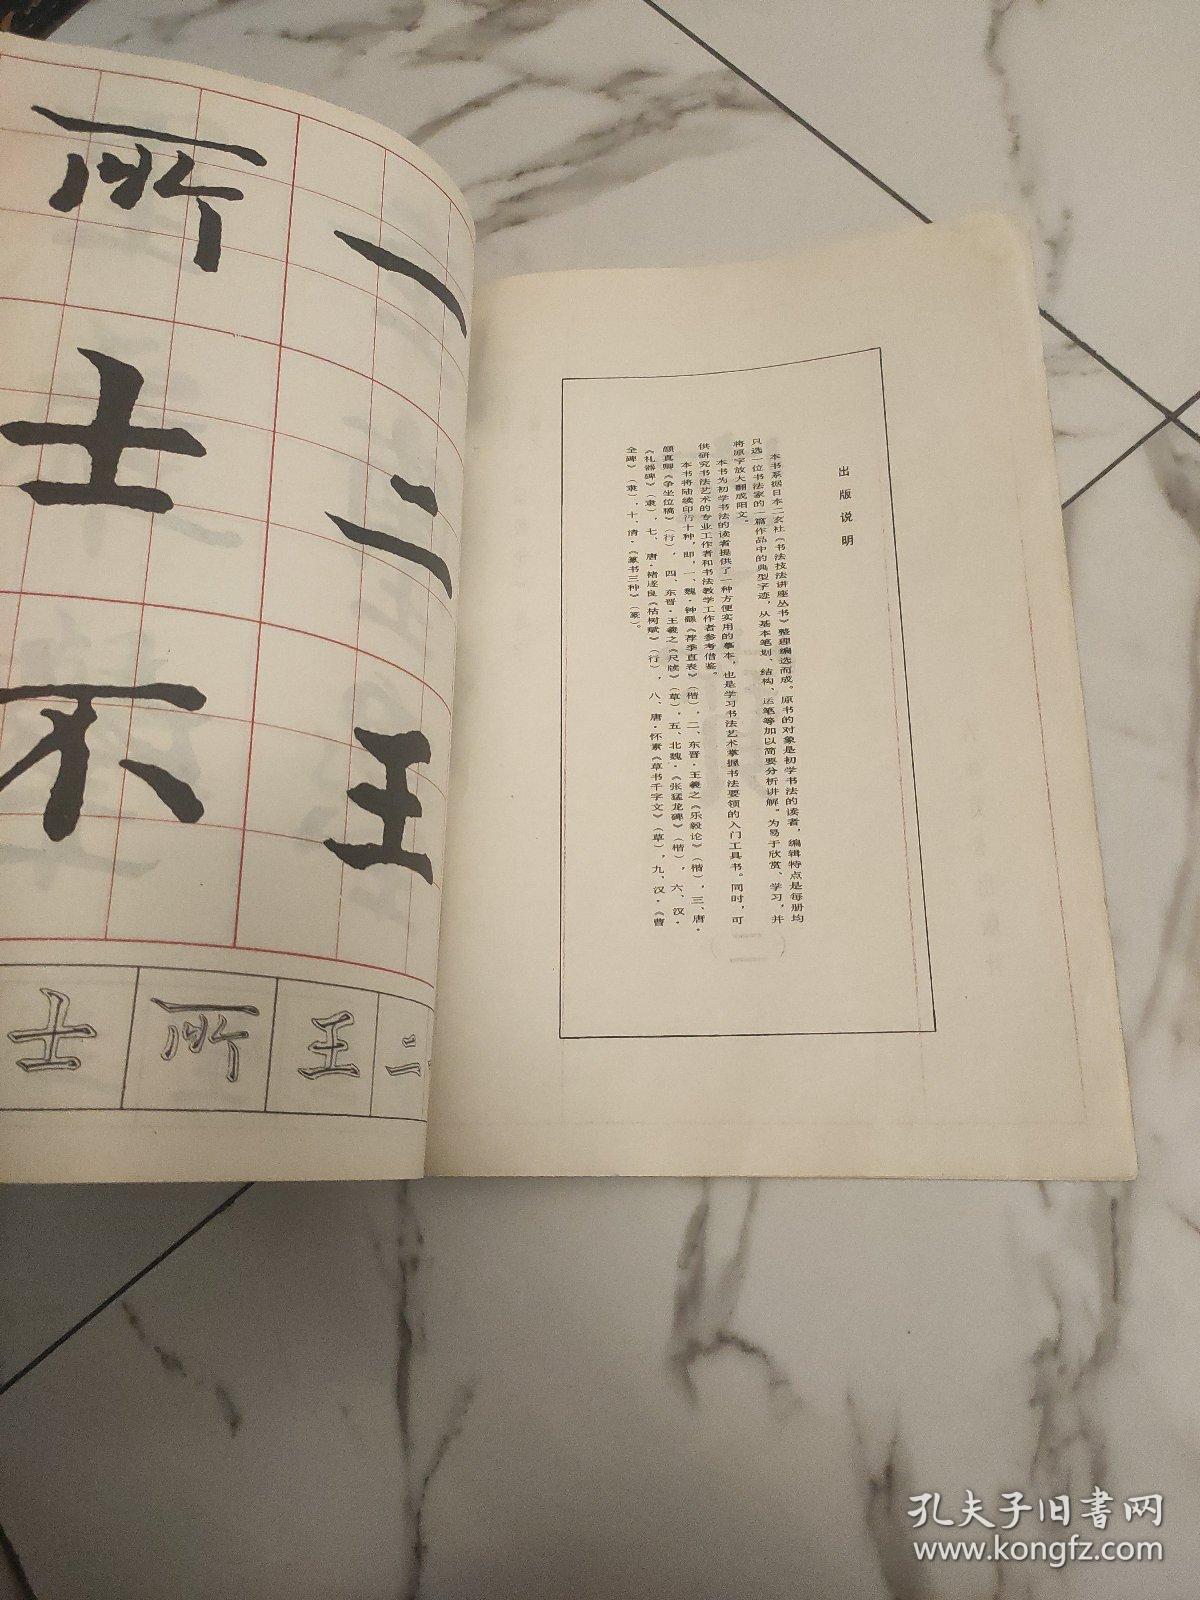 出版说明
本书系据日本二玄社《书法技法讲座丛书》整理编选而成。原书的对象是初学书法的读者，编辑特点是每册均
只选一位书法家的一篇作品中的典型字迹，从基本笔划、结构、运笔等加以简要分析讲解。为易于欣赏、学习，并
将原字放大翻成阳文。
本书为初学书法的读者提供了一种方便实用的摹本，也是学习书法艺术掌握书法要领的入门工具书。同时，可
供研究书法艺术的专业工作者和书法教学工作者参考借鉴。
本书将陆续印行十种，即，一、魏·钟繇《荐季直表》（楷），二、东晋·王羲之《乐毅论》（楷），三、唐·
颜真卿《争坐位稿》（行），四、东晋·王羲之《尺牍》（草），五、北魏·《张猛龙碑》（楷），六、汉·
《礼器碑》（隶），七、唐·褚遂良《枯树赋》（行），八、唐·怀素《草书千字文》（草），九、汉·《曹
全碑》（隶），十、清·《篆书三种》（篆）。
一二王
所士不
二王所士
孔夫子旧书网
www.kongfz.com